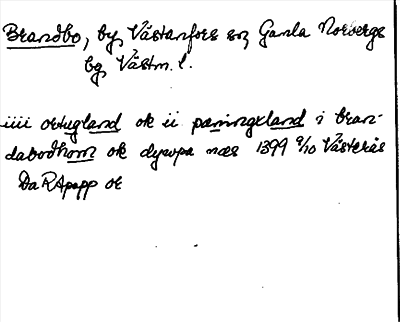 Brandbo, by, Västanfors sn, Gamla Norbergs
bg, Västm. l.
iiii ørtugland ok ii pæningxland i bran-
dabodhom ok dyupa næs 1399 9/10 Västerås
Da RApapp or